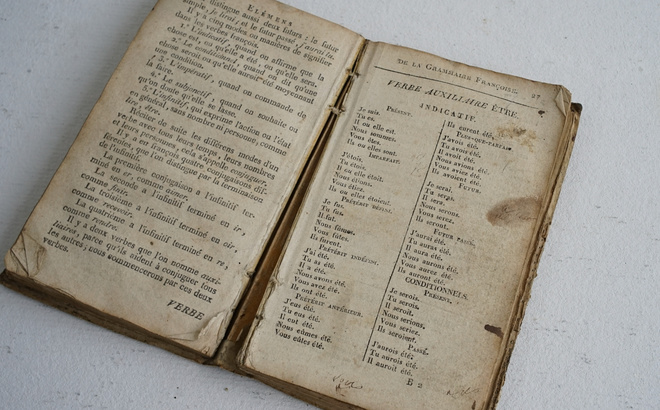 ELÉMENS
distingue aussi deux futurs : le futur
simple, je lirai; et le futur passé, j'aurai lu.
Il y a cinq modes ou manières de signifier
dans les verbes françois.
1.° L'indicatif, quand on affirme que la
chose est, ou qu'elle a été, ou qu'elle sera.
2.° Le conditionnel, quand on dit qu'une
chose seroit ou qu'elle auroit été moyennant
une condition.
3.° L'impératif, quand on commande de
la faire.
4.° Le subjonctif, quand on souhaite ou
qu'on doute qu'elle se fasse.
5.° L'infinitif, qui exprime l'action ou l'état
en général, sans nombre ni personne, comme
lire, être.
Réciter de suite les différens modes d'un
verbe avec tous leurs temps, leurs nombres
et leurs personnes, cela s'appelle conjuguer.
Il y a en françois quatre conjugaisons dif-
férentes, que l'on distingue par la terminaison
de l'infinitif.
La première conjugaison a l'infinitif ter-
miné en er, comme aimer.
La seconde a l'infinitif terminé en ir,
comme finir.
La troisième a l'infinitif terminé en oir,
comme recevoir.
La quatrième a l'infinitif terminé en re,
comme rendre.
Il y a deux verbes que l'on nomme auxi-
liaires, parce qu'ils aident à conjuguer tous
les autres; nous commencerons par ces deux
verbes.
VERBE
DE LA GRAMMAIRE FRANÇOISE. 27
VERBE AUXILIAIRE ÊTRE.
INDICATIF.
PRÉSENT.
Je suis.
Tu es.
Il ou elle est.
Nous sommes.
Vous êtes.
Ils ou elles sont.
IMPARFAIT.
J'étois.
Tu étois.
Il ou elle étoit.
Nous étions.
Vous étiez.
Ils ou elles étoient.
PRÉTÉRIT DÉFINI.
Je fus.
Tu fus.
Il fut.
Nous fûmes.
Vous fûtes.
Ils furent.
PRÉTÉRIT INDÉFINI.
J'ai été.
Tu as été.
Il a été.
Nous avons été.
Vous avez été.
Ils ont été.
PRÉTÉRIT ANTÉRIEUR.
J'eus été.
Tu eus été.
Il eut été.
Nous eûmes été.
Vous eûtes été.
Ils eurent été.
PLUSQUE-PARFAIT.
J'avois été.
Tu avois été.
Il avoit été.
Nous avions été.
Vous aviez été.
Ils avoient été.
FUTUR.
Je serai.
Tu seras.
Il sera.
Nous serons.
Vous serez.
Ils seront.
FUTUR PASSÉ.
J'aurai été.
Tu auras été.
Il aura été.
Nous aurons été.
Vous aurez été.
Ils auront été.
CONDITIONNELS.
PRÉSENT.
Je serois.
Tu serois.
Il seroit.
Nous serions.
Vous seriez.
Ils seroient.
PASSÉ.
J'aurois été.
Tu aurois été.
Il auroit été.
B 2